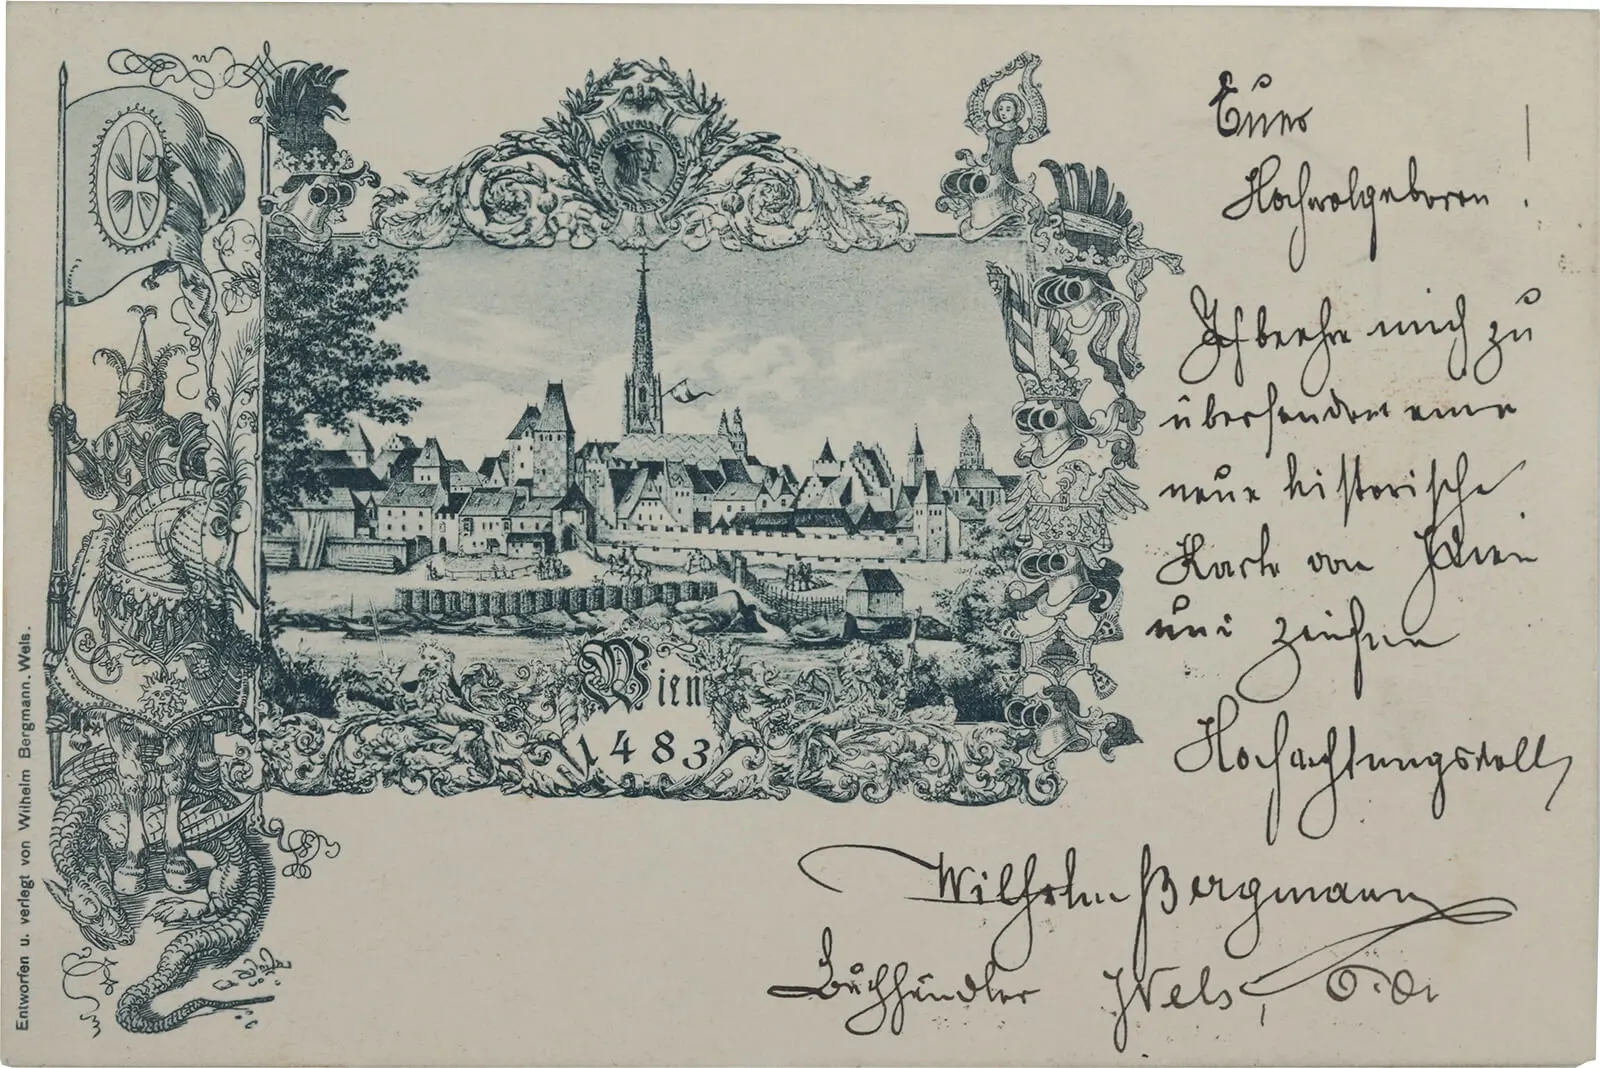 Wien
1483
Entworfen u. verlegt von Wilhelm Bergmann. Wels.
Euer
Hochwolgeboren!
Ich beehre mich zu
übersenden eine
neue historische
Karte von Wien
und zeichne
Hochachtungsvoll
Wilhelm Bergmann
Buchhändler Wels, O.Ö.